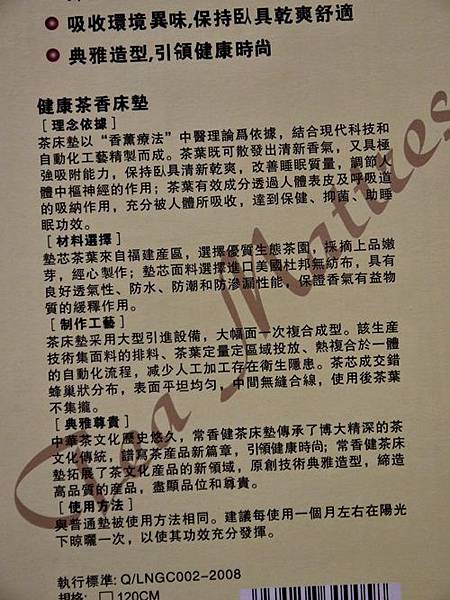 吸收環境異味,保持臥具乾爽舒適
典雅造型,引領健康時尚
健康茶香床墊
[理念依據]
茶床墊以“香薰療法”中醫理論爲依據，結合現代科技和
自動化工藝精製而成。茶葉既可散發出清新香氣，又具極
強吸附能力，保持臥具清新乾爽，改善睡眠質量，調節人
體中樞神經的作用；茶葉有效成分透過人體表皮及呼吸道
的吸納作用，充分被人體所吸收，達到保健、抑菌、助睡
眠功效。
[材料選擇]
墊芯茶葉來自福建産區，選擇優質生態茶園，採摘上品嫩
芽，經心製作；墊芯面料選擇進口美國杜邦無紡布，具有
良好透氣性、防水、防潮和防滲漏性能、保證香氣有益物
質的緩釋作用。
[制作工藝]
茶床墊采用大型引進設備，大幅面一次複合成型。該生産
技術集面料的排料、茶葉定量定區域投放、熱複合於一體
的自動化流程，减少人工加工存在衛生隱患。茶芯成交錯
蜂巢狀分布，表面平坦均勻，中間無縫合線，使用後茶葉
不集攏。
[典雅尊貴]
中華茶文化歷史悠久，常香健茶床墊傳承了博大精深的茶
文化傳統，譜寫茶産品新篇章，引領健康時尚；常香健茶床
墊拓展了茶文化産品的新領域，原創技術典雅造型，締造
高品質的産品，盡顯品位和尊貴。
[使用方法]
與普通墊被使用方法相同。建議每使用一個月左右在陽光
下晾曬一次，以使其功效充分發揮。
執行標準: Q/LNGC002-2008
規格: □120CM
Tea Mattres